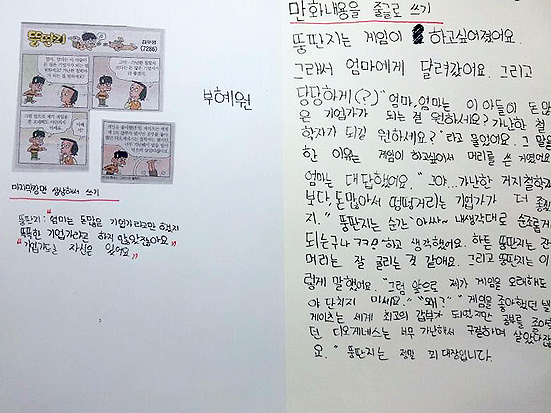 뚱딴지
김우영
(7286)
부혜원
마지막장면 상상해서 쓰기
뚱딴지: "엄마는 돈많은 기업가라고만 했지
똑똑한 기업가라곤 하지 않았잖아요"
만화내용을 줄글로 쓰기
뚱딴지는 게임이 하고싶어졌어요.
그래서 엄마에게 달려갔어요. 그리고
당당하게(?) "엄마, 엄마는 이 아들이 돈 많
은 기업가가 되는 걸 원하세요? 가난한 철
학자가 되길 원하세요?"라고 물었어요. 그 말을
한 이유는 게임이 하고싶어서 머리를 쓴 거였어요
엄마는 대답했어요. "그야...가난한 거지철학자
보다, 돈많아서 떵떵거리는 기업가가 더 좋겠
지." 뚱딴지는 순간 '아싸~ 내생각대로 순조롭게
되는구나 ㅋㅋ'하고 생각했어요. 하튼 뚱딴지는 잔
머리는 잘 굴리는 것 같애요. 그리고 뚱딴지는 이
렇게 말했어요. "그럼 앞으로 제가 게임을 오래해도
야단치지 마세요." "왜?" "게임을 좋아했던 빌
게이츠는 세계 최고의 갑부가 되었지만 공부를 좋아했
던 디오게네스는 너무 가난해서 구걸하며 살았다잖
요." 뚱딴지는 정말 꾀 대장입니다.